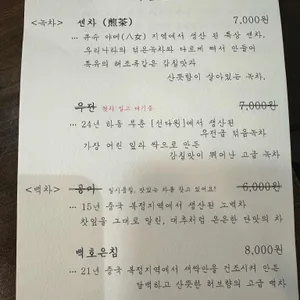 <녹차> 센차 (煎茶) 7,000원
... 큐슈 야메(八女) 지역에서 생산 된 특상 센차.
우리나라의 덖은녹차와 다르게 쪄서 만들어
특유의 해조류같은 감칠맛과
산뜻함이 살아있는 녹차.
우전 7,000원
... 24년 하동 부춘 [선다원]에서 생산된
우전급 덖음녹차
가장 어린 잎라 싹으로 만든
감칠맛이 뛰어난 고급 녹차
<백차> 6,000원
... 15년 중국 복정지역에서 생산된 노백차
찻잎을 그대로 말린, 대추처럼 은은한 단맛의 차
백호은침 8,000원
... 21년 중국 복정지역에서 새싹만을 건조시켜 만든
담백하고 산뜻한 허브향의 고급 백차